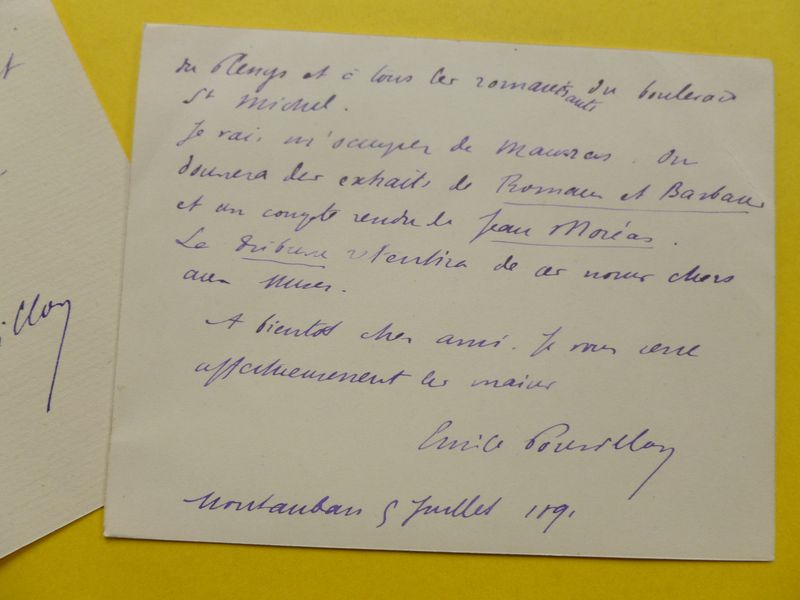 t
illon
du Plessys et à tous les romanisants du boulevard
St Michel.
Je vais m'occuper de Maurras. On
donnera des extraits de Romans et Barbares
et un compte rendu de Jean Moréas.
La Tribune retentira de ces noms chers
aux Muses.
A bientot cher ami. Je vous serre
affectueusement les mains
Emile Pouvillon
Montauban 5 Juillet 1891